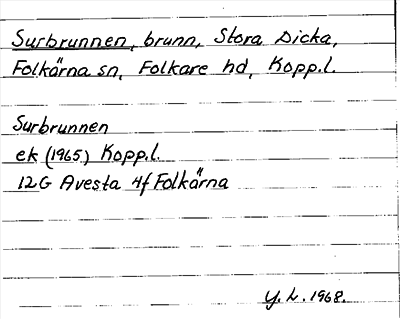 Surbrunnen, brunn, Stora Dicka,
Folkärna sn, Folkare hd, Kopp.l.
Surbrunnen
ek (1965) Kopp.l.
12G Avesta 4f Folkärna
Y.L. 1968.